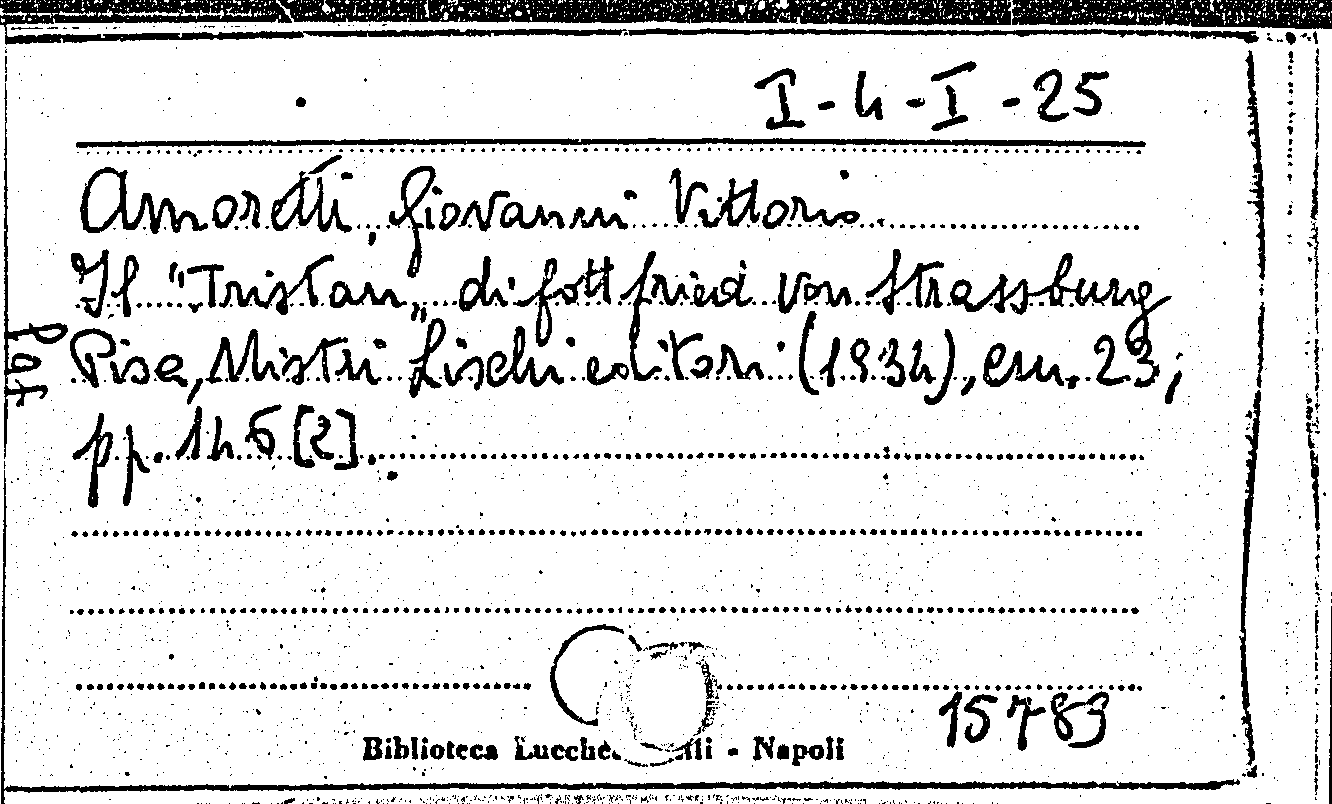 I-4-I-25
Amoretti, Giovanni Vittorio.
Il "Tristan" di Gottfried von Strassburg
Pisa, Nistri Lischi editori (1934), cm. 23;
pp. 146 [2].
15783
Biblioteca - Napoli